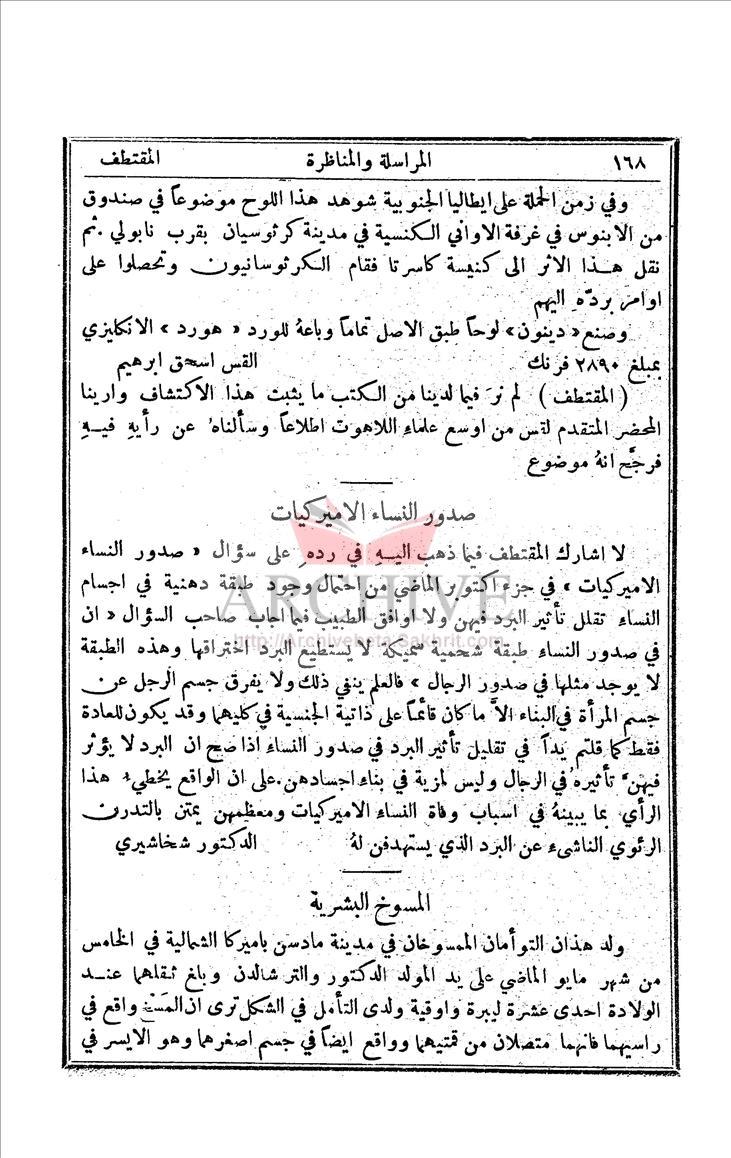 ١٦٨ المراسلة والمناظرة المقتطف
وفي زمن الحملة على ايطاليا الجنوبية شوهد هذا اللوح موضوعاً في صندوق
من الابنوس في غرفة الاواني الكنسية في مدينة كرثوسيان بقرب نابولي . ثم
نقل هذا الاثر الى كنيسة كاسرتا فقام الكرثوسانيون وتحصلوا على
اوامر بردّه اليهم
وصنع « دينون » لوحاً طبق الاصل تماماً وباعهُ للورد « هورد » الانكليزي
بمبلغ ٢٨٩٠ فرنك القس اسحق ابرهيم
( المقتطف ) لم نرَ فيما لدينا من الكتب ما يثبت هذا الاكتشاف وارينا
المحضر المتقدم لقس من اوسع علماء اللاهوت اطلاعاً وسألناهُ عن رأيهِ فيهِ
فرجّح انهُ موضوع
صدور النساء الاميركيات
لا اشارك المقتطف فيما ذهب اليهِ في ردهِ على سؤال « صدور النساء
الاميركيات » في جزء اكتوبر الماضي من احتمال وجود طبقة دهنية في اجسام
النساء تقلل تأثير البرد فيهن ولا اوافق الطبيب فيما اجاب صاحب السؤال « ان
ARCHIVE
http://Archivebeta.Sakhrit.com
في صدور النساء طبقة شحمية سميكة لا يستطيع البرد اختراقها وهذه الطبقة
لا يوجد مثلها في صدور الرجال » فالعلم ينفي ذلك ولا يفرق جسم الرجل عن
جسم المرأة في البناء الاَّ ما كان قائماً على ذاتية الجنسية في كليهما وقد يكون للعادة
فقط كما قلتم يداً في تقليل تأثير البرد في صدور النساء اذا صح ان البرد لا يؤثر
فيهنَّ تأثيره في الرجال وليس لمزية في بناء اجسادهن . على ان الواقع يخطيء هذا
الرأي بما يبينهُ في اسباب وفاة النساء الاميركيات ومعظمهن يمتن بالتدرن
الرئوي الناشىء عن البرد الذي يستهدفن لهُ الدكتور شخاشيري
المسوخ البشرية
ولد هذان التوأمان الممسوخان في مدينة مادسن باميركا الشمالية في الخامس
من شهر مايو الماضي على يد المولد الدكتور والتر شالدن وبلغ ثقلهما عند
الولادة احدى عشرة ليبرة واوقية ولدى التأمل في الشكل ترى ان المَسْخ واقع في
راسيهما فانهما متصلان من قمتيهما وواقع ايضاً في جسم اصغرهما وهو الايسر في